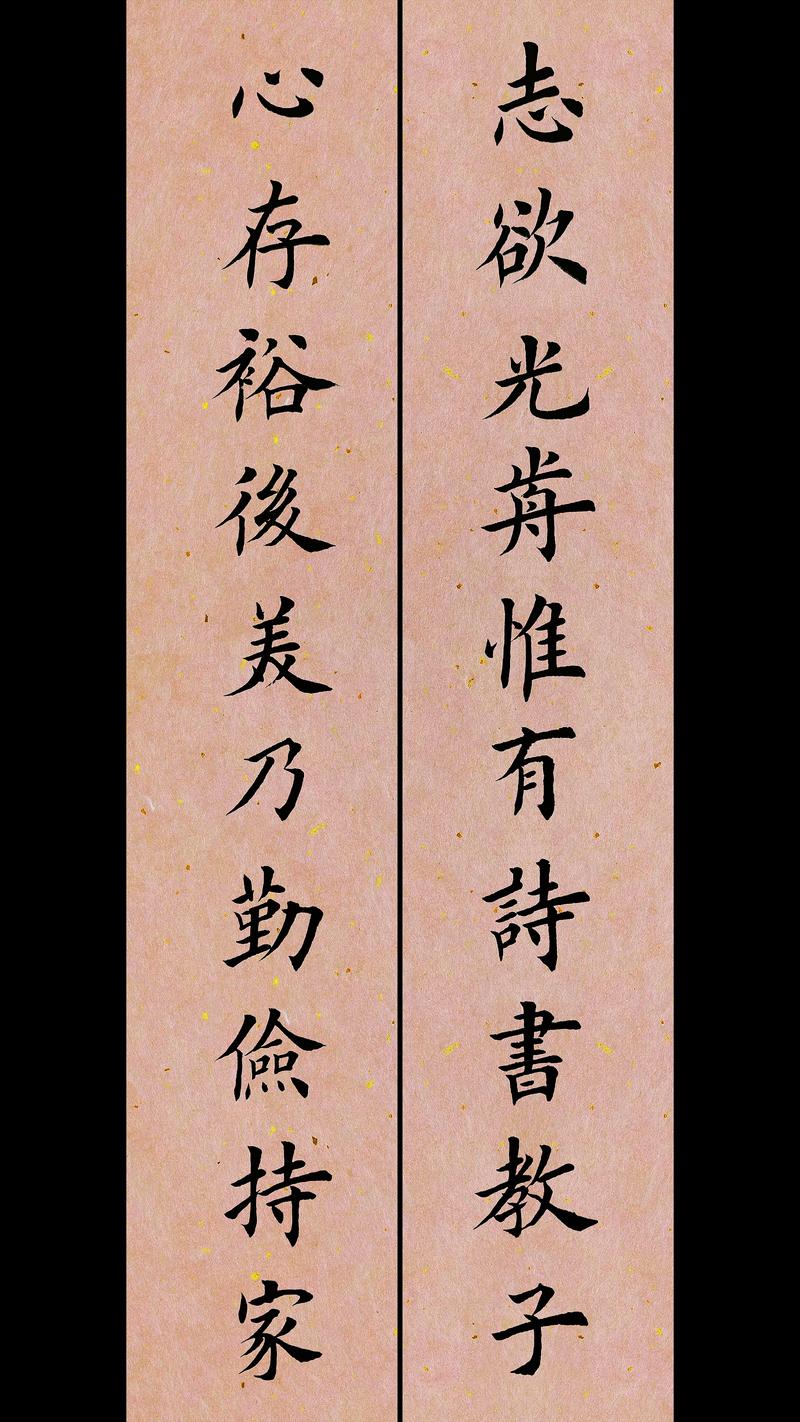 志欲光歬惟有詩書教子
心存裕後美乃勤儉持家